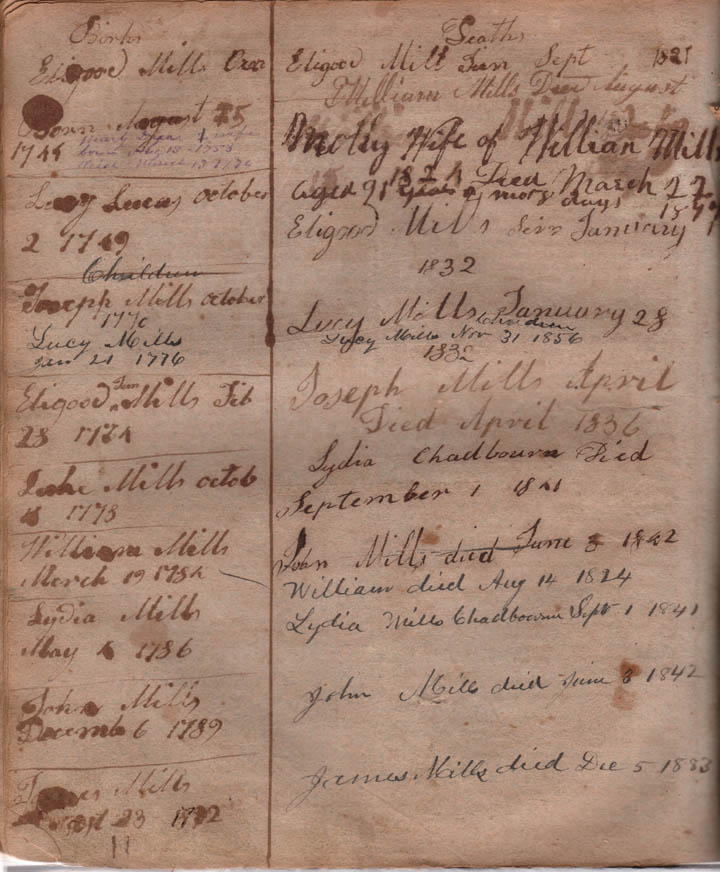 Births
Eligood Mills
Born August 25
1744
Lucy Lucas october
2 1749
Children
Joseph Mills october
1770
Lucy Mills
Jan 21 1776
Eligood Jun Mills Feb
28 1774
Luke Mills octob
1778
William Mills
March 19 1784
Lydia Mills
May 1786
John Mills
Decemb 6 1789
James Mills
23 1792
11
Deaths
Eligood Mills Jun Sept 1821
William Mills Died August
Molly Wife of William Mills
1824 Died March 27
aged 91 years 9 mos days
Eligood Mills Senr January
1832
Lucy Mills January 28
Children
Lucy Mills Nov 31 1856
1832
Joseph Mills April
Died April 1836
Lydia Chadbourn Died
September 1 1841
John Mills died June 8 1842
William died Aug 14 1824
Lydia Mills Chadbourn Sept 1 1841
John Mills died June 8 1842
James Mills died Dec 5 1883